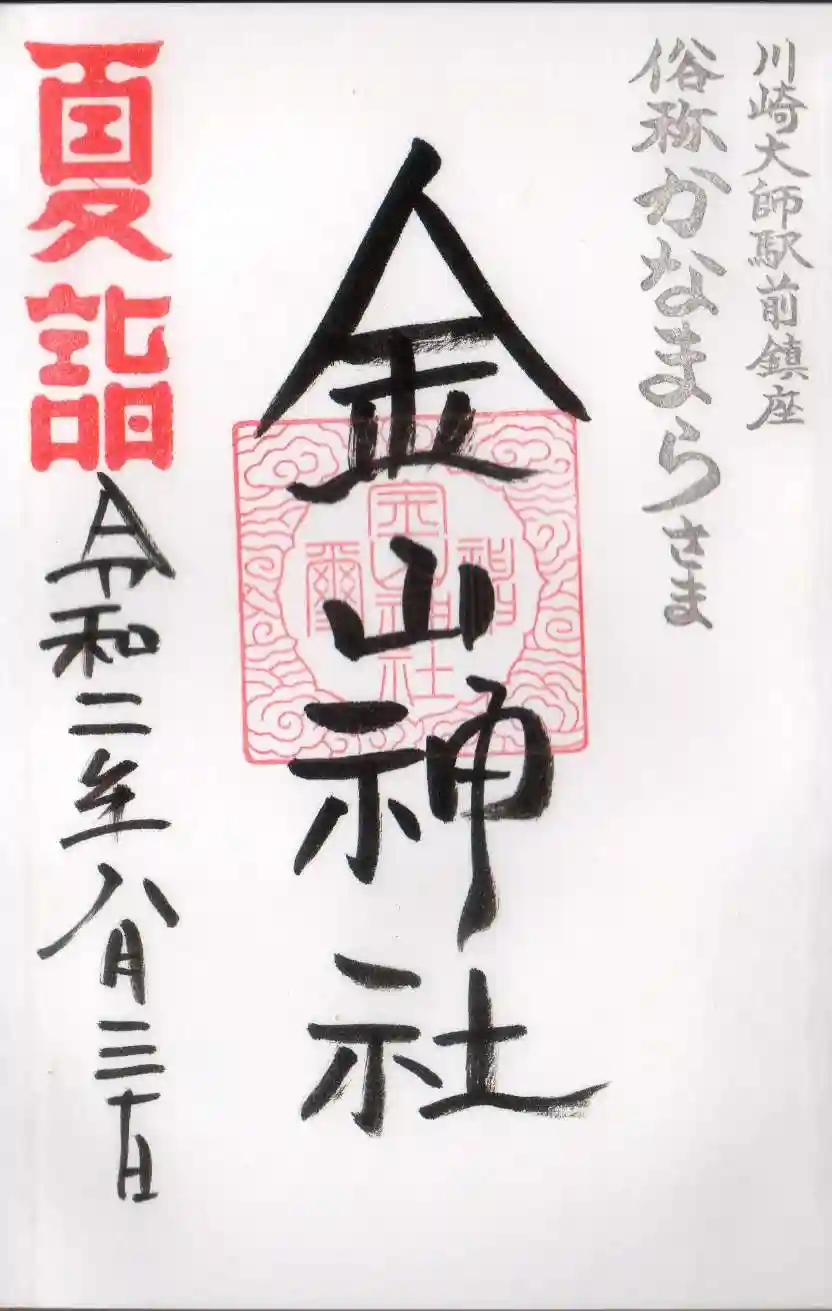 川崎大師駅前鎮座
俗称かなまらさま
金山神社
金山神社
神
璽
夏詣
令和二年八月三十日